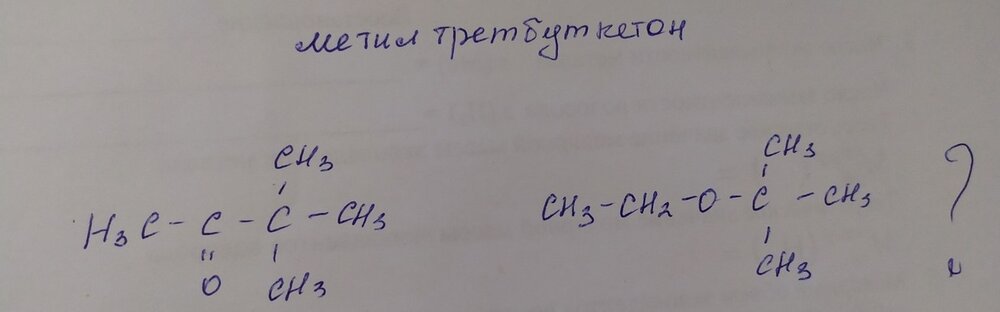 метил третбуткетон
CH3 CH3
H3C - C - C - CH3 CH3 - CH2 - O - C - CH3 ?
O CH3 CH3